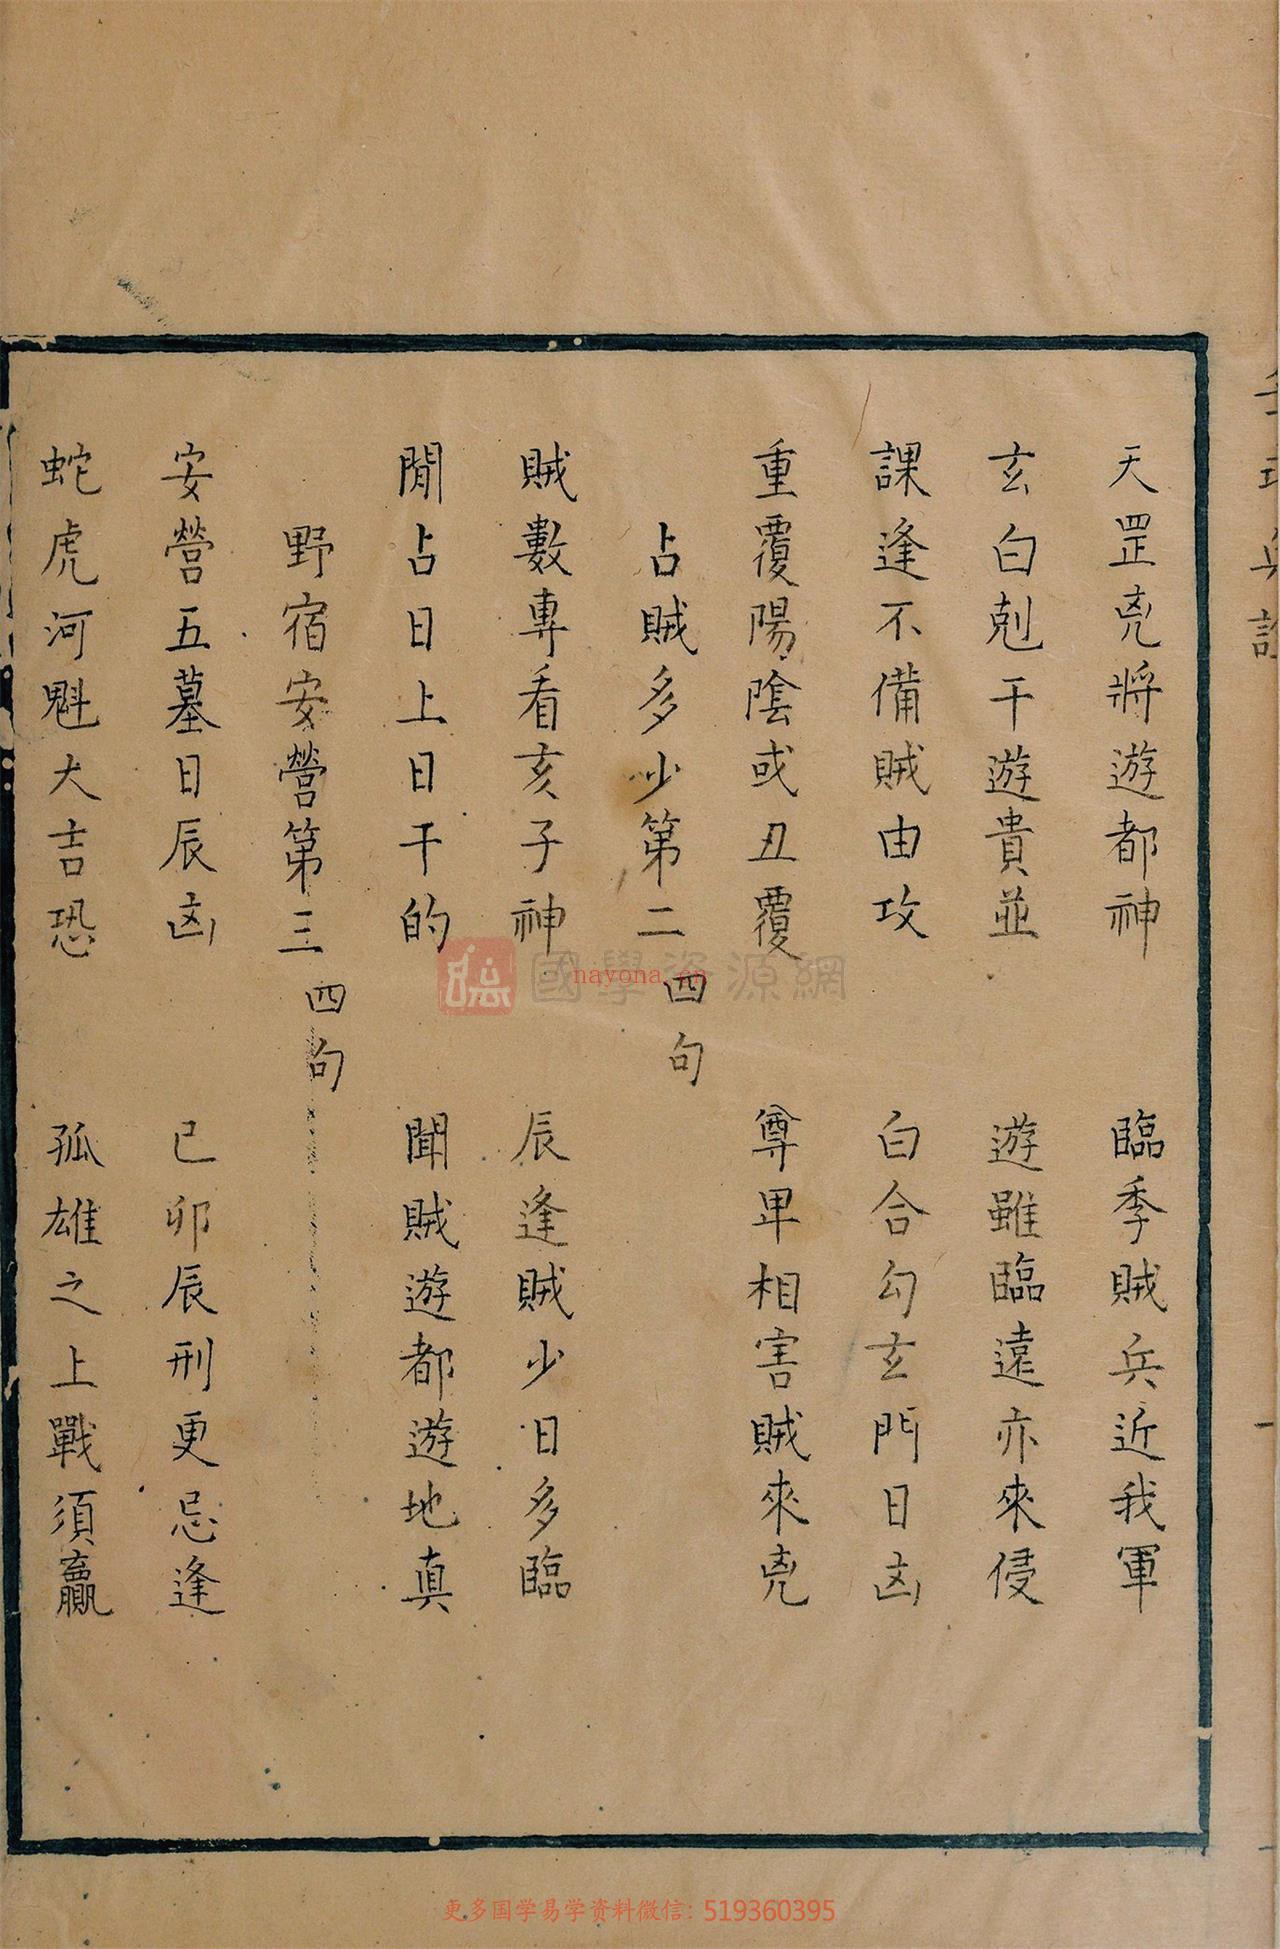 天罡克將遊都神　臨季賊兵近我軍
玄白剋干遊貴並　遊雖臨遠亦來侵
課逢不備賊由攻　白合勾玄門日凶
重覆陽陰或丑覆　尊卑相害賊來克
占賊多少第二四句
賊數專看亥子神　辰逢賊少日多臨
閒占日上日干的　聞賊遊都遊地真
野宿安營第三四句
安營五墓日辰凶　已卯辰刑更忌逢
蛇虎河魁大吉恐　孤雄之上戰須贏
國學資源網
nayona.cn
更多国学易学资料微信：519360395